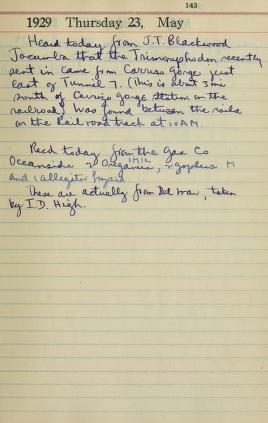 143
1929 Thursday 23, May
Heard today from J.T. Blackwood
Jacumba that the Trimorphodon recently
sent in came from Carriso Gorge just
East of Tunnel 7. (This is about 3 mi
south of Carriso Gorge Station on the
railroad) Was found between the rails
on the Railroad track at 10 AM.
Recd today from the Gas Co
Oceanside 2 Oreganus, 2 gophers M
and 1 alligator lizard
These are actually from Del Mar, taken
by I.D. High.